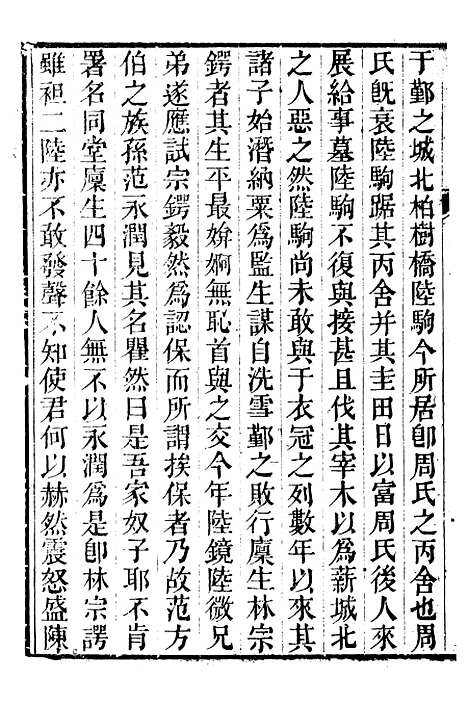 于鄞之城北柏樹橋陸駒今所居卽周氏之丙舍也周
氏旣衰陸駒踞其丙舍并其圭田日以富周氏後人來
展給事墓陸駒不復與接甚且伐其宰木以爲薪城北
之人惡之然陸駒尚未敢與于衣冠之列數年以來其
諸子始潛納粟爲監生謀自洗雪鄞之敗行廩生林宗
鍔者其生平最媕婀無恥首與之交今年陸鏡陸微兄
弟遂應試宗鍔毅然爲認保而所謂挨保者乃故范方
伯之族孫范永潤見其名瞿然曰是吾家奴子耶不肯
署名同堂廩生四十餘人無不以永潤爲是卽林宗諤
雖袒二陸亦不敢發聲不知使君何以赫然震怒盛陳